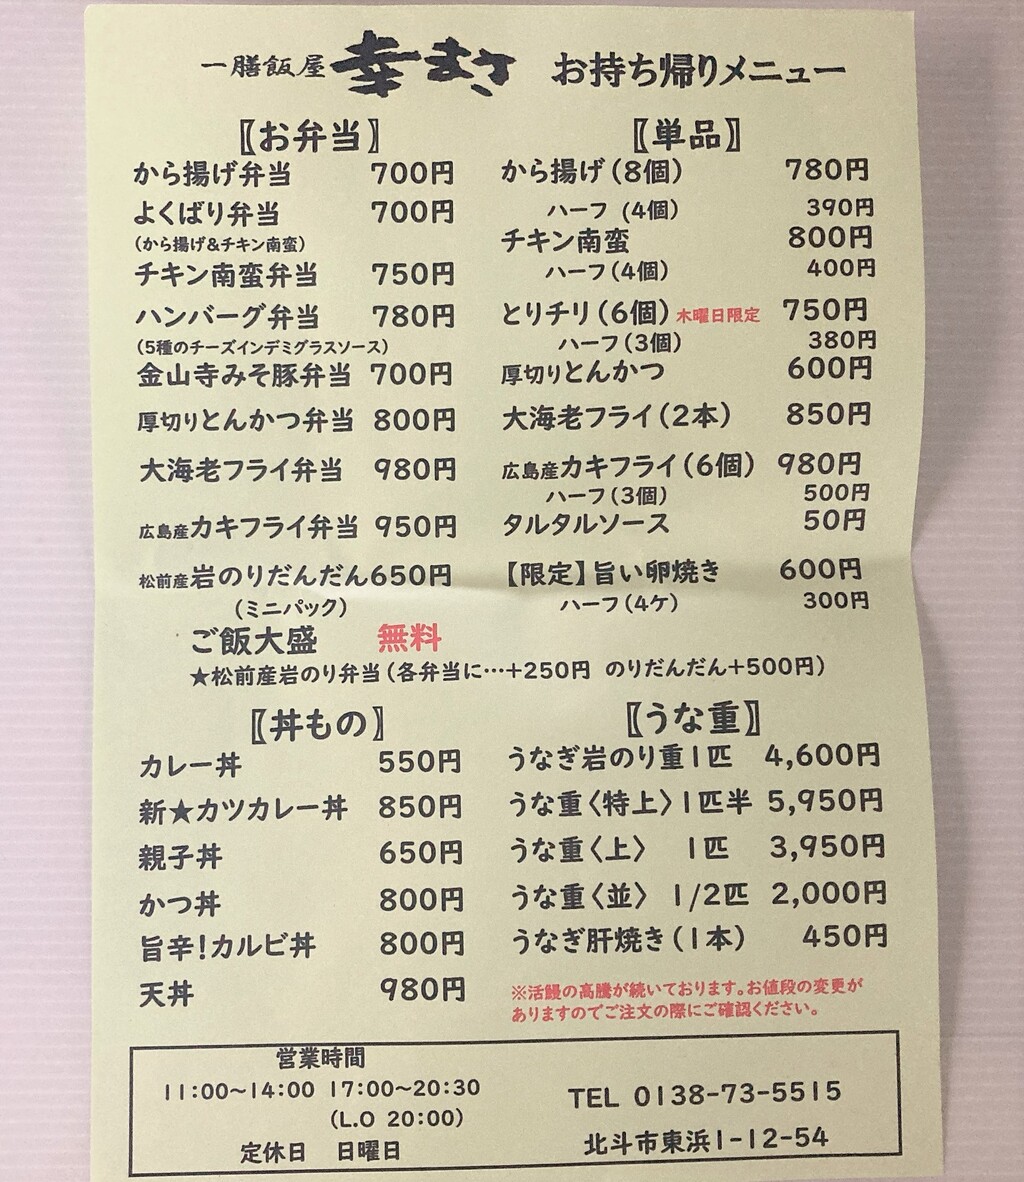 一膳飯屋 幸まさ お持ち帰りメニュー
〖お弁当〗
から揚げ弁当 700円
よくばり弁当 700円
(から揚げ&チキン南蛮)
チキン南蛮弁当 750円
ハンバーグ弁当 780円
(5種のチーズインデミグラスソース)
金山寺みそ豚弁当 700円
厚切りとんかつ弁当 800円
大海老フライ弁当 980円
広島産カキフライ弁当 950円
松前産岩のりだんだん650円
(ミニパック)
〖単品〗
から揚げ(8個) 780円
ハーフ (4個) 390円
チキン南蛮 800円
ハーフ(4個) 400円
とりチリ(6個)木曜日限定 750円
ハーフ(3個) 380円
厚切りとんかつ 600円
大海老フライ(2本) 850円
広島産カキフライ(6個) 980円
ハーフ(3個) 500円
タルタルソース 50円
【限定】旨い卵焼き 600円
ハーフ(4ケ) 300円
ご飯大盛 無料
★松前産岩のり弁当(各弁当に…+250円 のりだんだん+500円)
〖丼もの〗
カレー丼 550円
新★カツカレー丼 850円
親子丼 650円
かつ丼 800円
旨辛!カルビ丼 800円
天丼 980円
〖うな重〗
うなぎ岩のり重1匹 4,600円
うな重〈特上〉1匹半 5,950円
うな重〈上〉 1匹 3,950円
うな重〈並〉 1/2匹 2,000円
うなぎ肝焼き(1本) 450円
※活鰻の高騰が続いております。お値段の変更が
ありますのでご注文の際にご確認ください。
営業時間
11:00~14:00 17:00~20:30
(L.O 20:00)
定休日 日曜日
TEL 0138-73-5515
北斗市東浜1-12-54